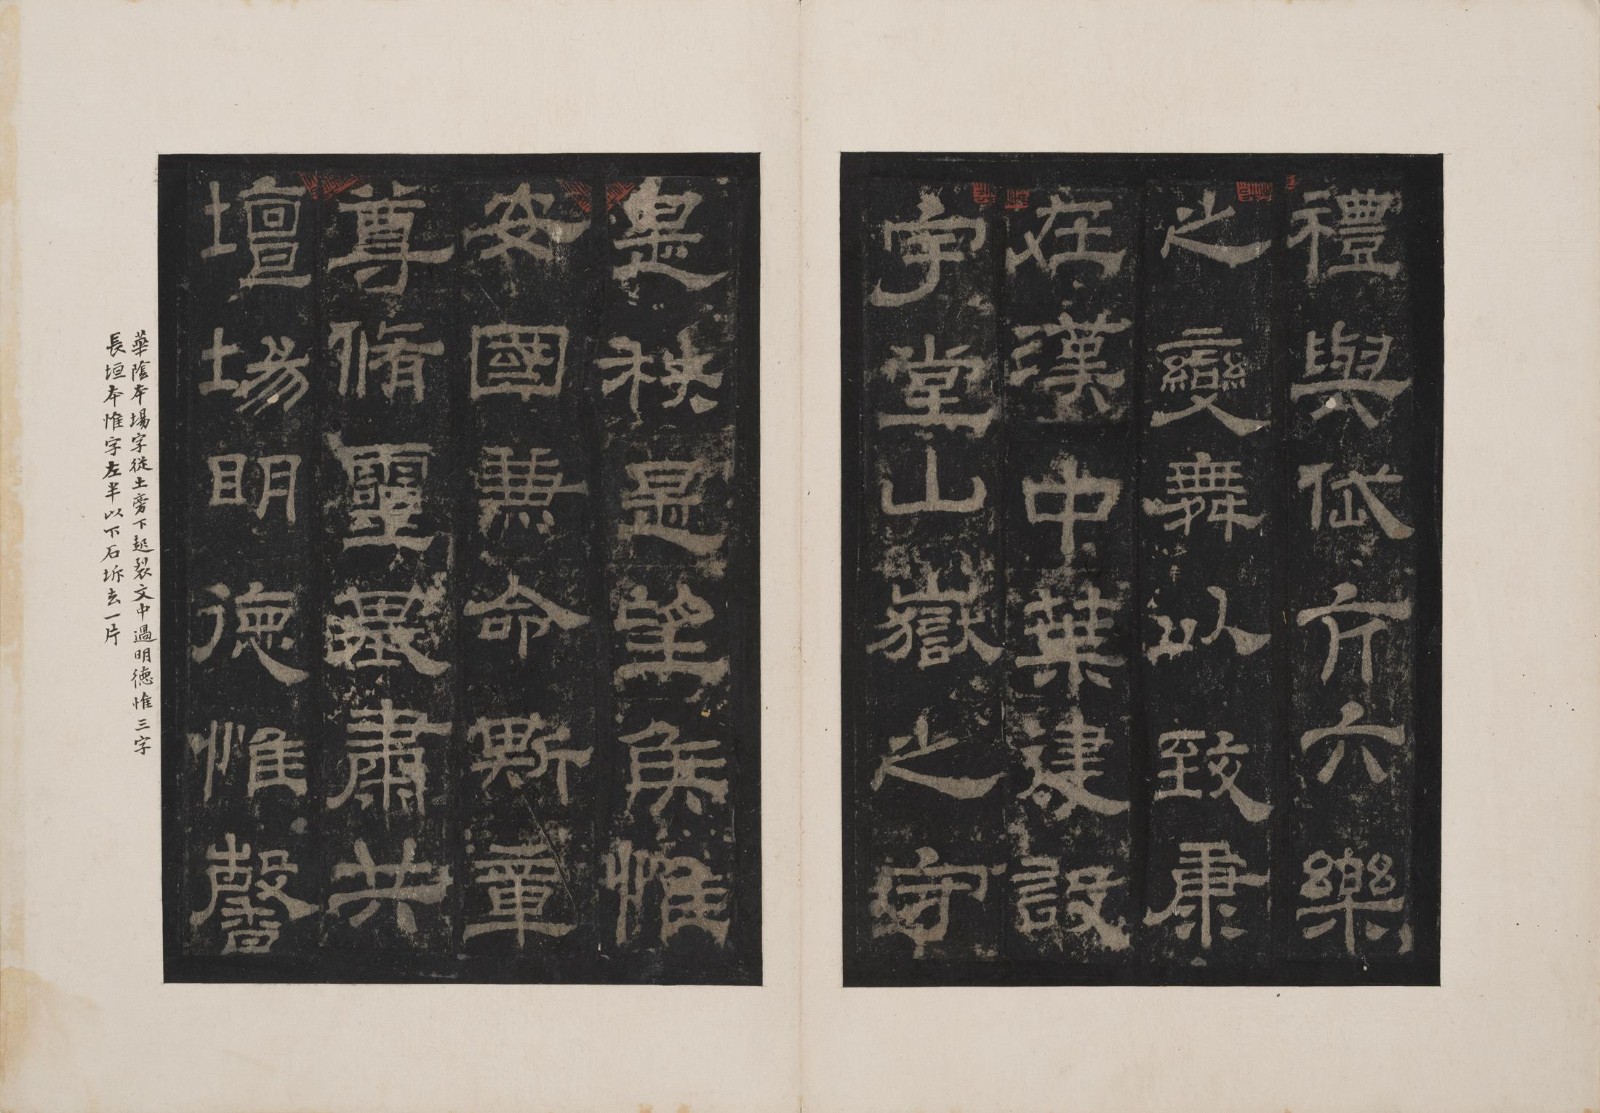 禮與岱亢六樂
之變舞以致康
在漢中葉建設
宇堂山嶽之守
是秩是望侯惟
安國兼命斯章
尊脩靈基肅共
壇場明德惟馨
華陰本場字從土旁下起裂文中過明德惟三字
長垣本惟字左半以下石坼去一片